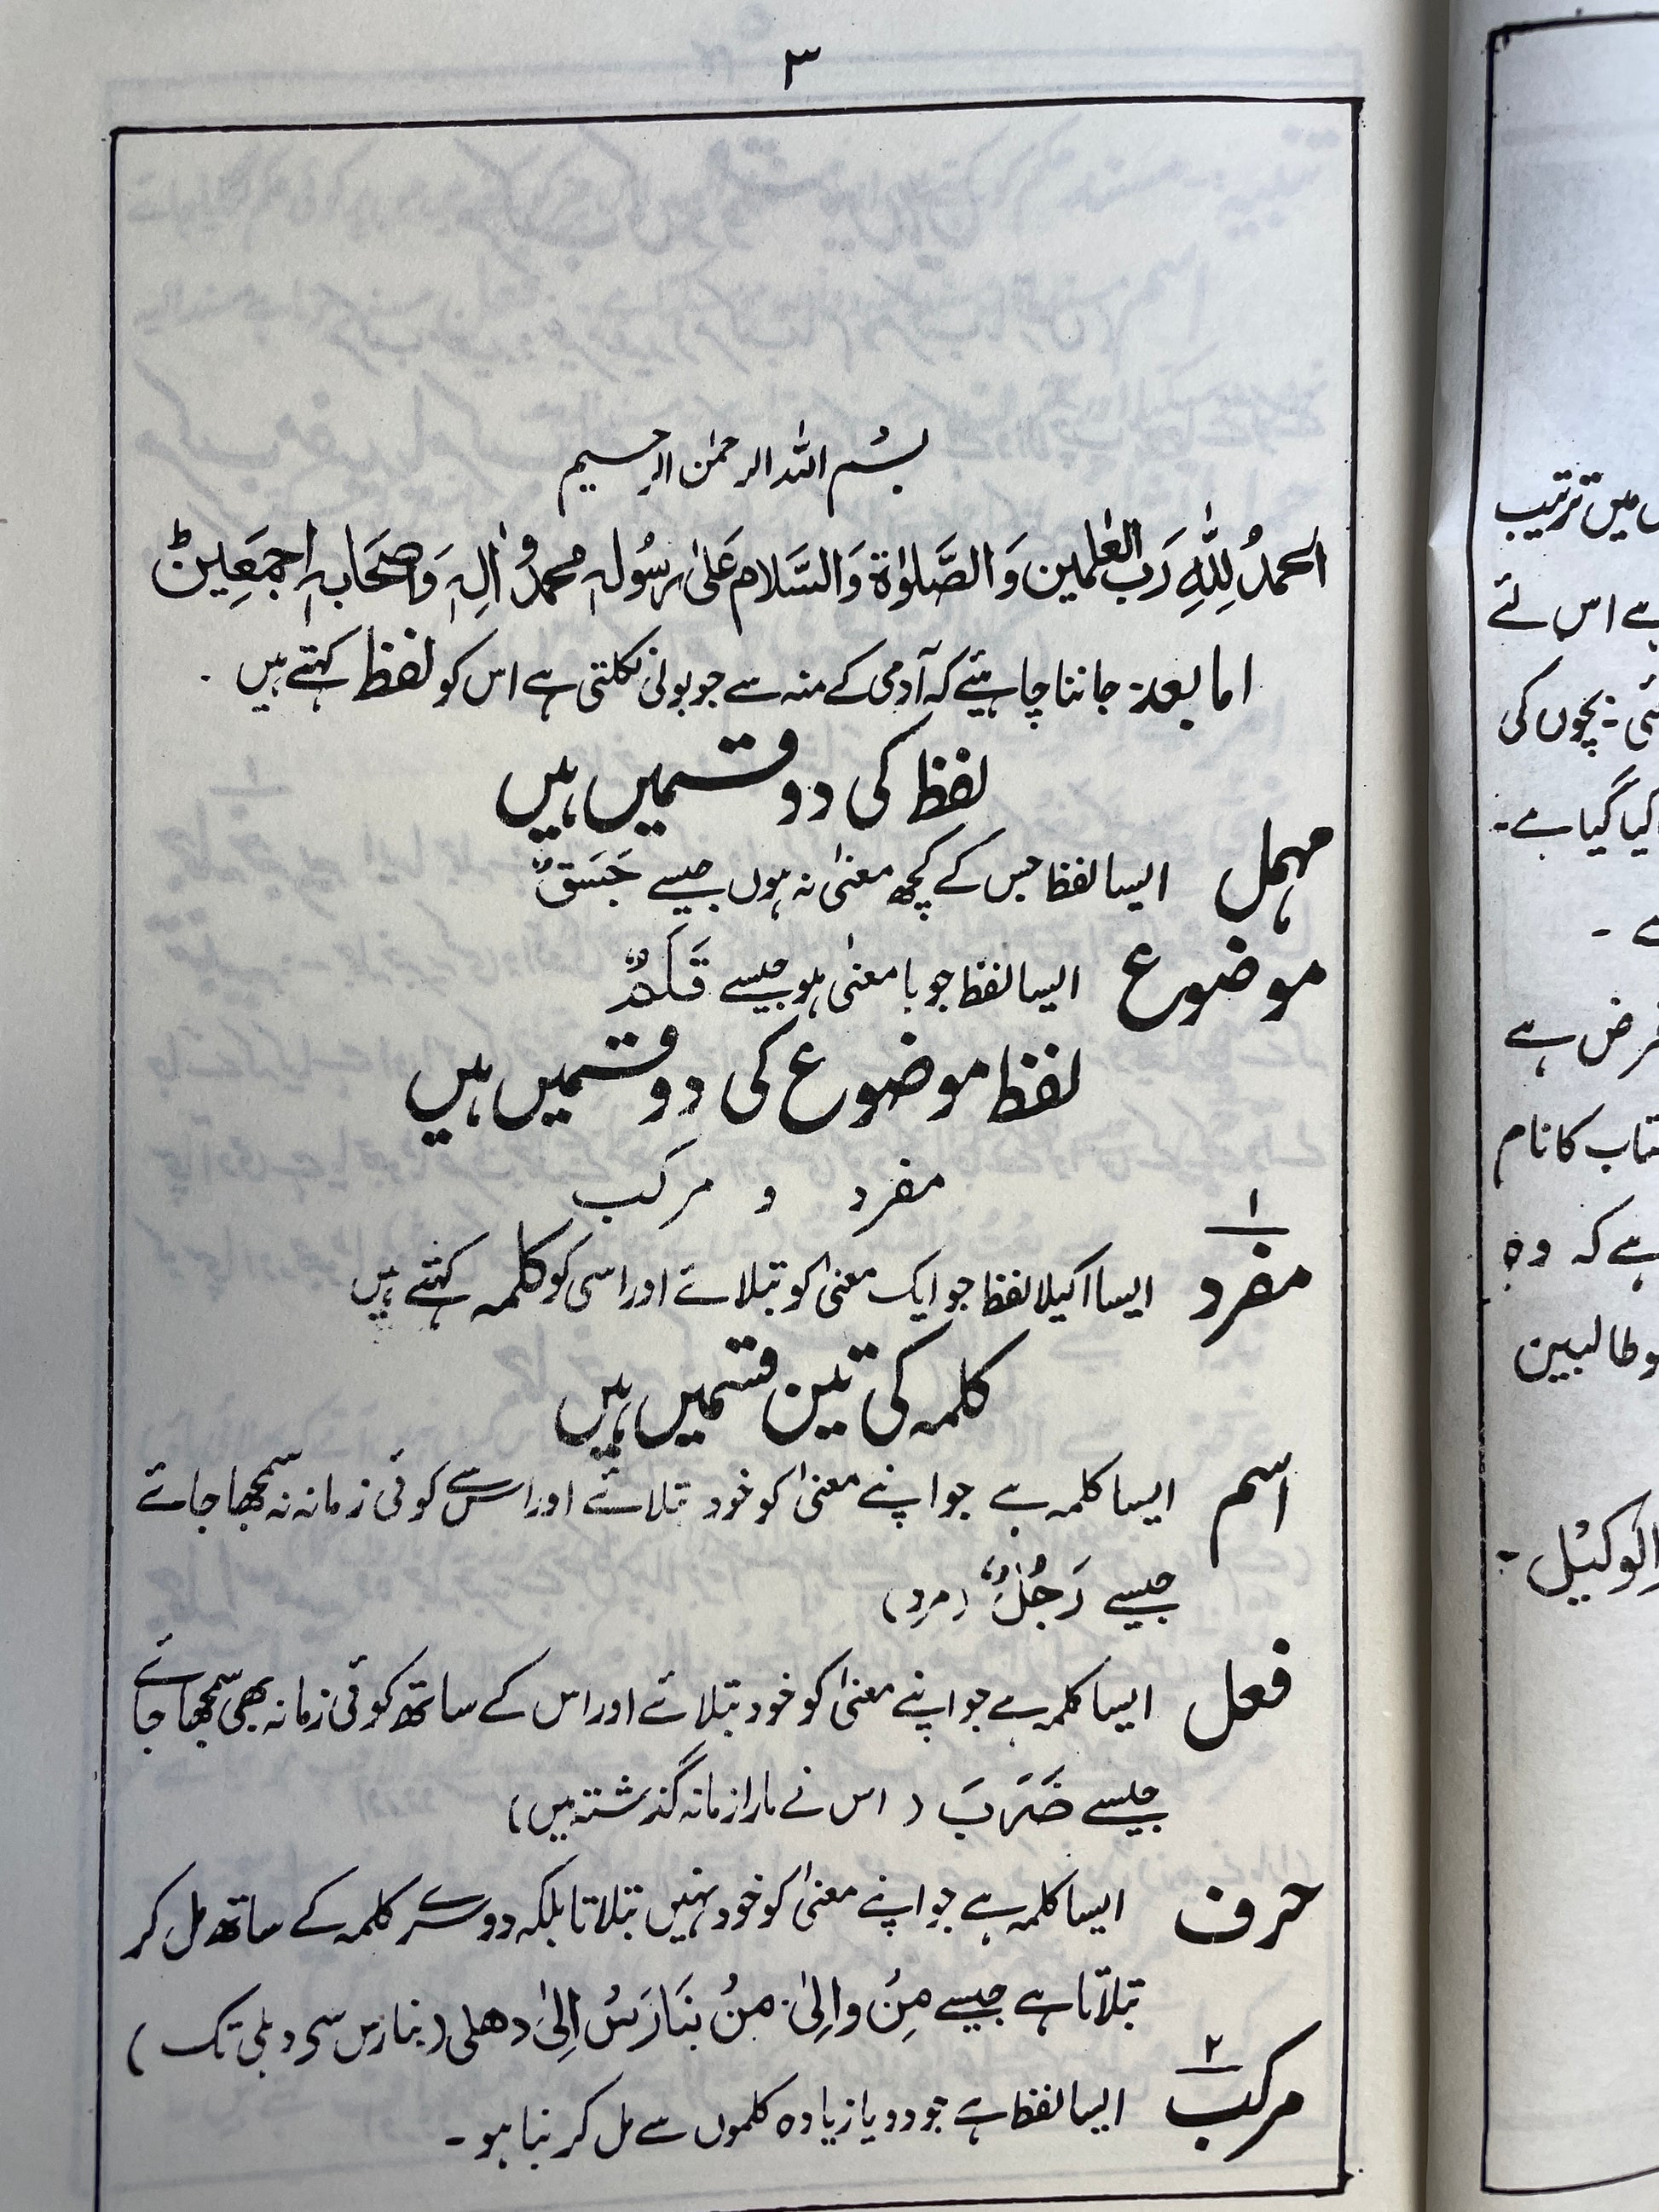 ۳
بسْم اللہ الرحمٰن الرحیم
الحمدُ لِلّٰہِ رَبِ العٰلمین وَالصَّلوٰۃ وَالسَّلام عَلیٰ رسُولہٖ محمدٍ وَّاٰلِہٖ وَاصْحَابہٖ اجمَعِینْ
اما بعد۔ جاننا چاہیئے کہ آدمی کے منہ سے جو بولی نکلتی ہے اس کو لفظ کہتے ہیں ۔
لفظ کی دو قسمیں ہیں
مہمل ایسا لفظ جس کے کچھ معنیٰ نہ ہوں جیسے جَسَقٌ
موضوع ایسا لفظ جو با معنیٰ ہو جیسے قَلَمٌ
لفظ موضوع کی دو قسمیں ہیں
مفرد و مرکب
۱
مفرد ایسا اکیلا لفظ جو ایک معنیٰ کو بتلائے اور اسی کو کلمہ کہتے ہیں
کلمہ کی تین قسمیں ہیں
اسم ایسا کلمہ ہے جو اپنے معنیٰ کو خود بتلائے اور اس سے کوئی زمانہ نہ سمجھا جائے
جیسے رَجُلٌ (مرد)
فعل ایسا کلمہ ہے جو اپنے معنیٰ کو خود بتلائے اور اس کے ساتھ کوئی زمانہ بھی سمجھا جائے
جیسے ضَرَبَ ( اس نے مارا زمانہ گذشتہ میں)
حرف ایسا کلمہ ہے جو اپنے معنیٰ کو خود نہیں بتلاتا بلکہ دوسرے کلمہ کے ساتھ مل کر
بتلاتا ہے جیسے مِنْ والیٰ۔ مِنْ بنَارَسْ اِلیٰ دھلی (بنارس سی دہلی تک )
۲
مرکب ایسا لفظ ہے جو دو یا زیادہ کلموں سے مل کر بنا ہو ۔
میں ترتیب
ہے اس لئے
ئی ۔ بچوں کی
کیا گیا ہے ۔
ے ۔
غرض ہے
کتاب کا نام
ہے کہ وہ
وطالبین
الوکیْل ۔